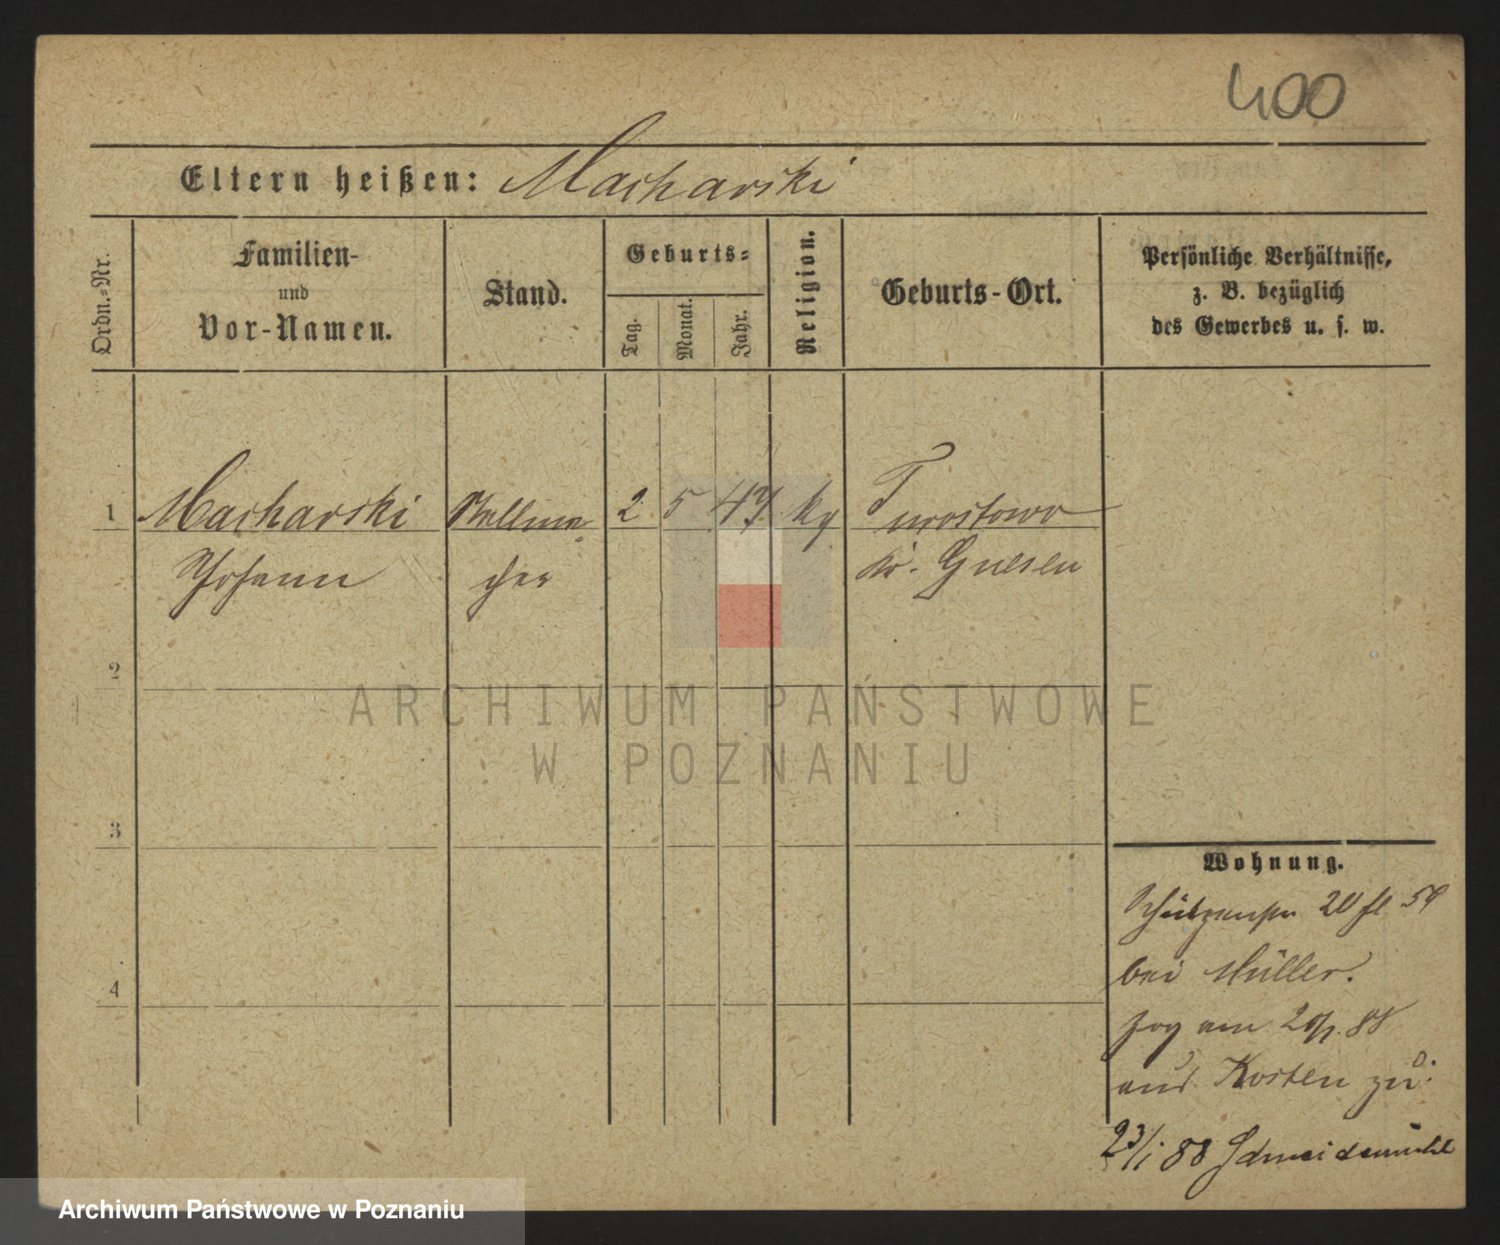 400
Eltern heißen: Macharski
Ordn.-Nr.
Familien-
und
Vor-Namen.
Stand.
Geburts-
Tag.
Monat.
Jahr.
Religion.
Geburts-Ort.
Persönliche Verhältnisse,
z. B. bezüglich
des Gewerbes u. s. w.
1 Macharski Stellma- 2 5 47 kg Turostowo
Johann cher Kr. Gnesen
2
3
4
ARCHIWUM PAŃSTWOWE
W POZNANIU
Wohnung.
Schützenstr 20
bei Müller.
zog am 20/1. 88
aus Kosten zu.
23/1 88 Schneidemühl
Archiwum Państwowe w Poznaniu